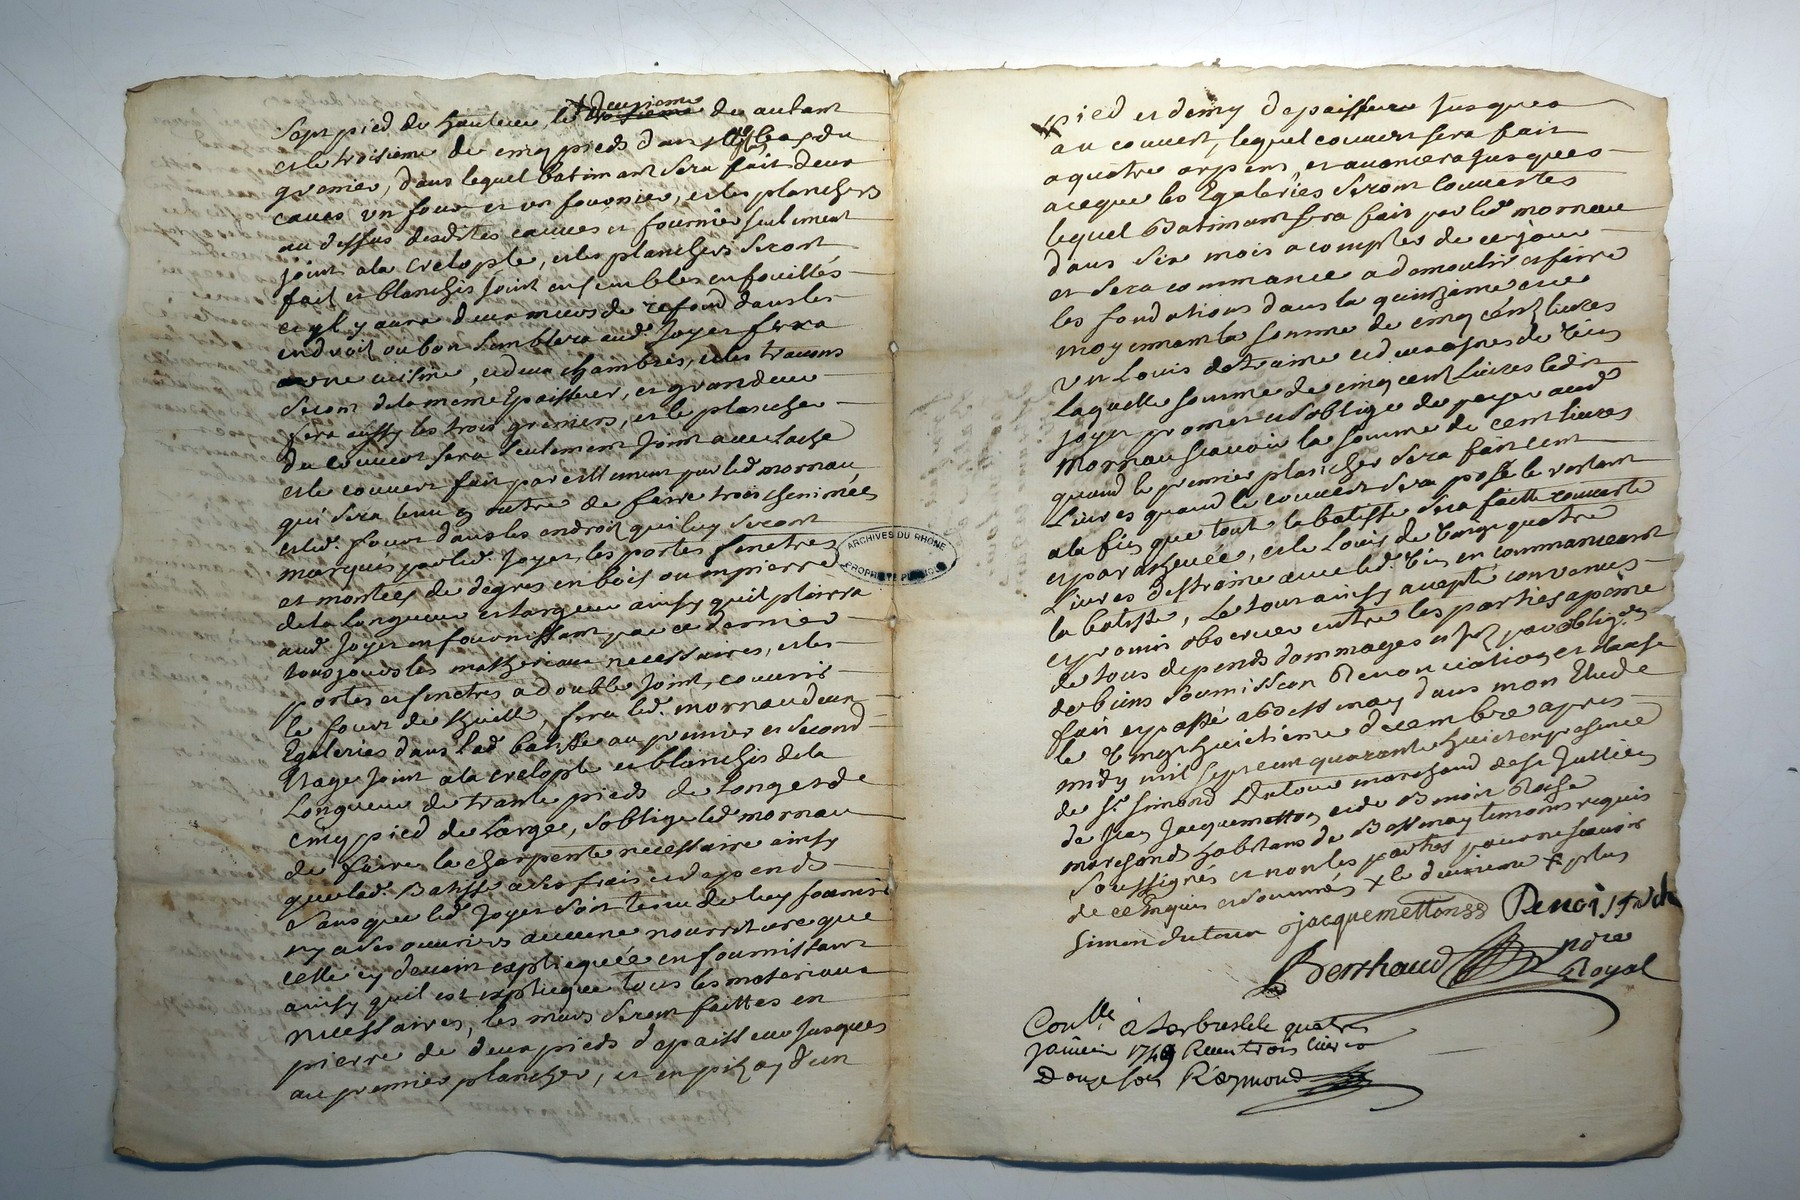 Sept pied de hauteur, le troisieme deuxieme de autant
et le troisieme de cinq pieds dans le bas du
grenier, dans lequel batimant sera fait deux
caves un four et un fournier, et les planchers
au dessus desdites cauves et fournier seulement
joint a la crelople, et les planchers seront
fait et blanchis joint ensembles en fouillés
et yl y aura deux murs de refond dans les
endroit ou bon semblera aud. Joyer fera
une cuisine, et deux chambres, et les travons
seront de la meme epaisseur, et grandeur
sera aussy les trois greniers, et le plancher
du couvert sera seulement joint avec lache
et le couvert fait pareillement par led. mornau
qui sera tenu en outre de faire trois cheminées
et led. four dans les endroit qui luy seront
marqués par led. Joyer, les portes fenetres
et montées de degres en bois ou en pierre
de la longueur et largeur ainsy quil plairra
aud. Joyer en fournissant par ce dernier
tousjours les matheriaux necessaires, et les
portes et finetres a double joint, couvrir
le four de thuille, fera led. mornau deux
Egaleries dans lad. batisse au premier et second
Etage joint a la crelople et blanchis de la
Longueur de trante pieds de long et de
cinq pied de large, s'oblige led. mornau
de faire la charpente necessaire ainsy
que lad. Batisse a ses frais et depends
sans que led. Joyer soit tenu de luy fournir
ny a ses ouvriers aucune nourriture que
celle cy devent expliequée en fournissant
ainsy quil est expliequé tous les materiaux
necessaires, les murs seront faittes en
pierre de deux pieds d'epaisseur jusques
au premier plancher, et en pizay d'un
ARCHIVES DU RHÔNE
PROPRIÉTÉ PUBLIQUE
pied et demy depaisseur jusques
au couvert, lequel couvert sera fait
a quatre arpens, et avancera jusques
aceque les Egaleries seront couvertes
lequel Batimant sera fait par led. mornau
dans six mois a comptes de ce jour
et sera commancé a demoulir et faire
les fondations dans la quinzaine avec
moyennant la somme de cinq cent livres
un Louis detraine et deux asnes de vin
laquelle somme de cinq cent livres led.
Joyer promet et s'oblige de payer aud.
Mornau scavoir la somme de cent livres
quand le premier plancher sera fait cent
Livres quand le couvert sera posé le restant
a la fin que tout la batisse sera faitte couverte
et parachevée, et le Louis de vingt quatre
Livres destraine avec led. vin en commancant
la batisse, Le tout ainsy accepté convenus
et promis observer entre les parties a peine
de tous depends dommages et par obligon
de biens soumission Renonciation et clause
fait et passé a Bessenay dans mon Etude
le vingt huictieme decembre apres
midy mil sept cent quarante huict en presence
de Sr. Simond Dutour marchand de St Jullien
de Jean Jacquemetton et de Benoit Roche
marchand habitans de Bessenay temoins requis
soussignés et non les parties pour ne scavoir
de ce enquis et sommés x le deuxieme x plus
Simon dutour jacquemetton Benoit roche
Berthaud nore
Royal
Conllé à Larbresle le quatre
janvier 1749 Receu trois livres
douze sols Reymond